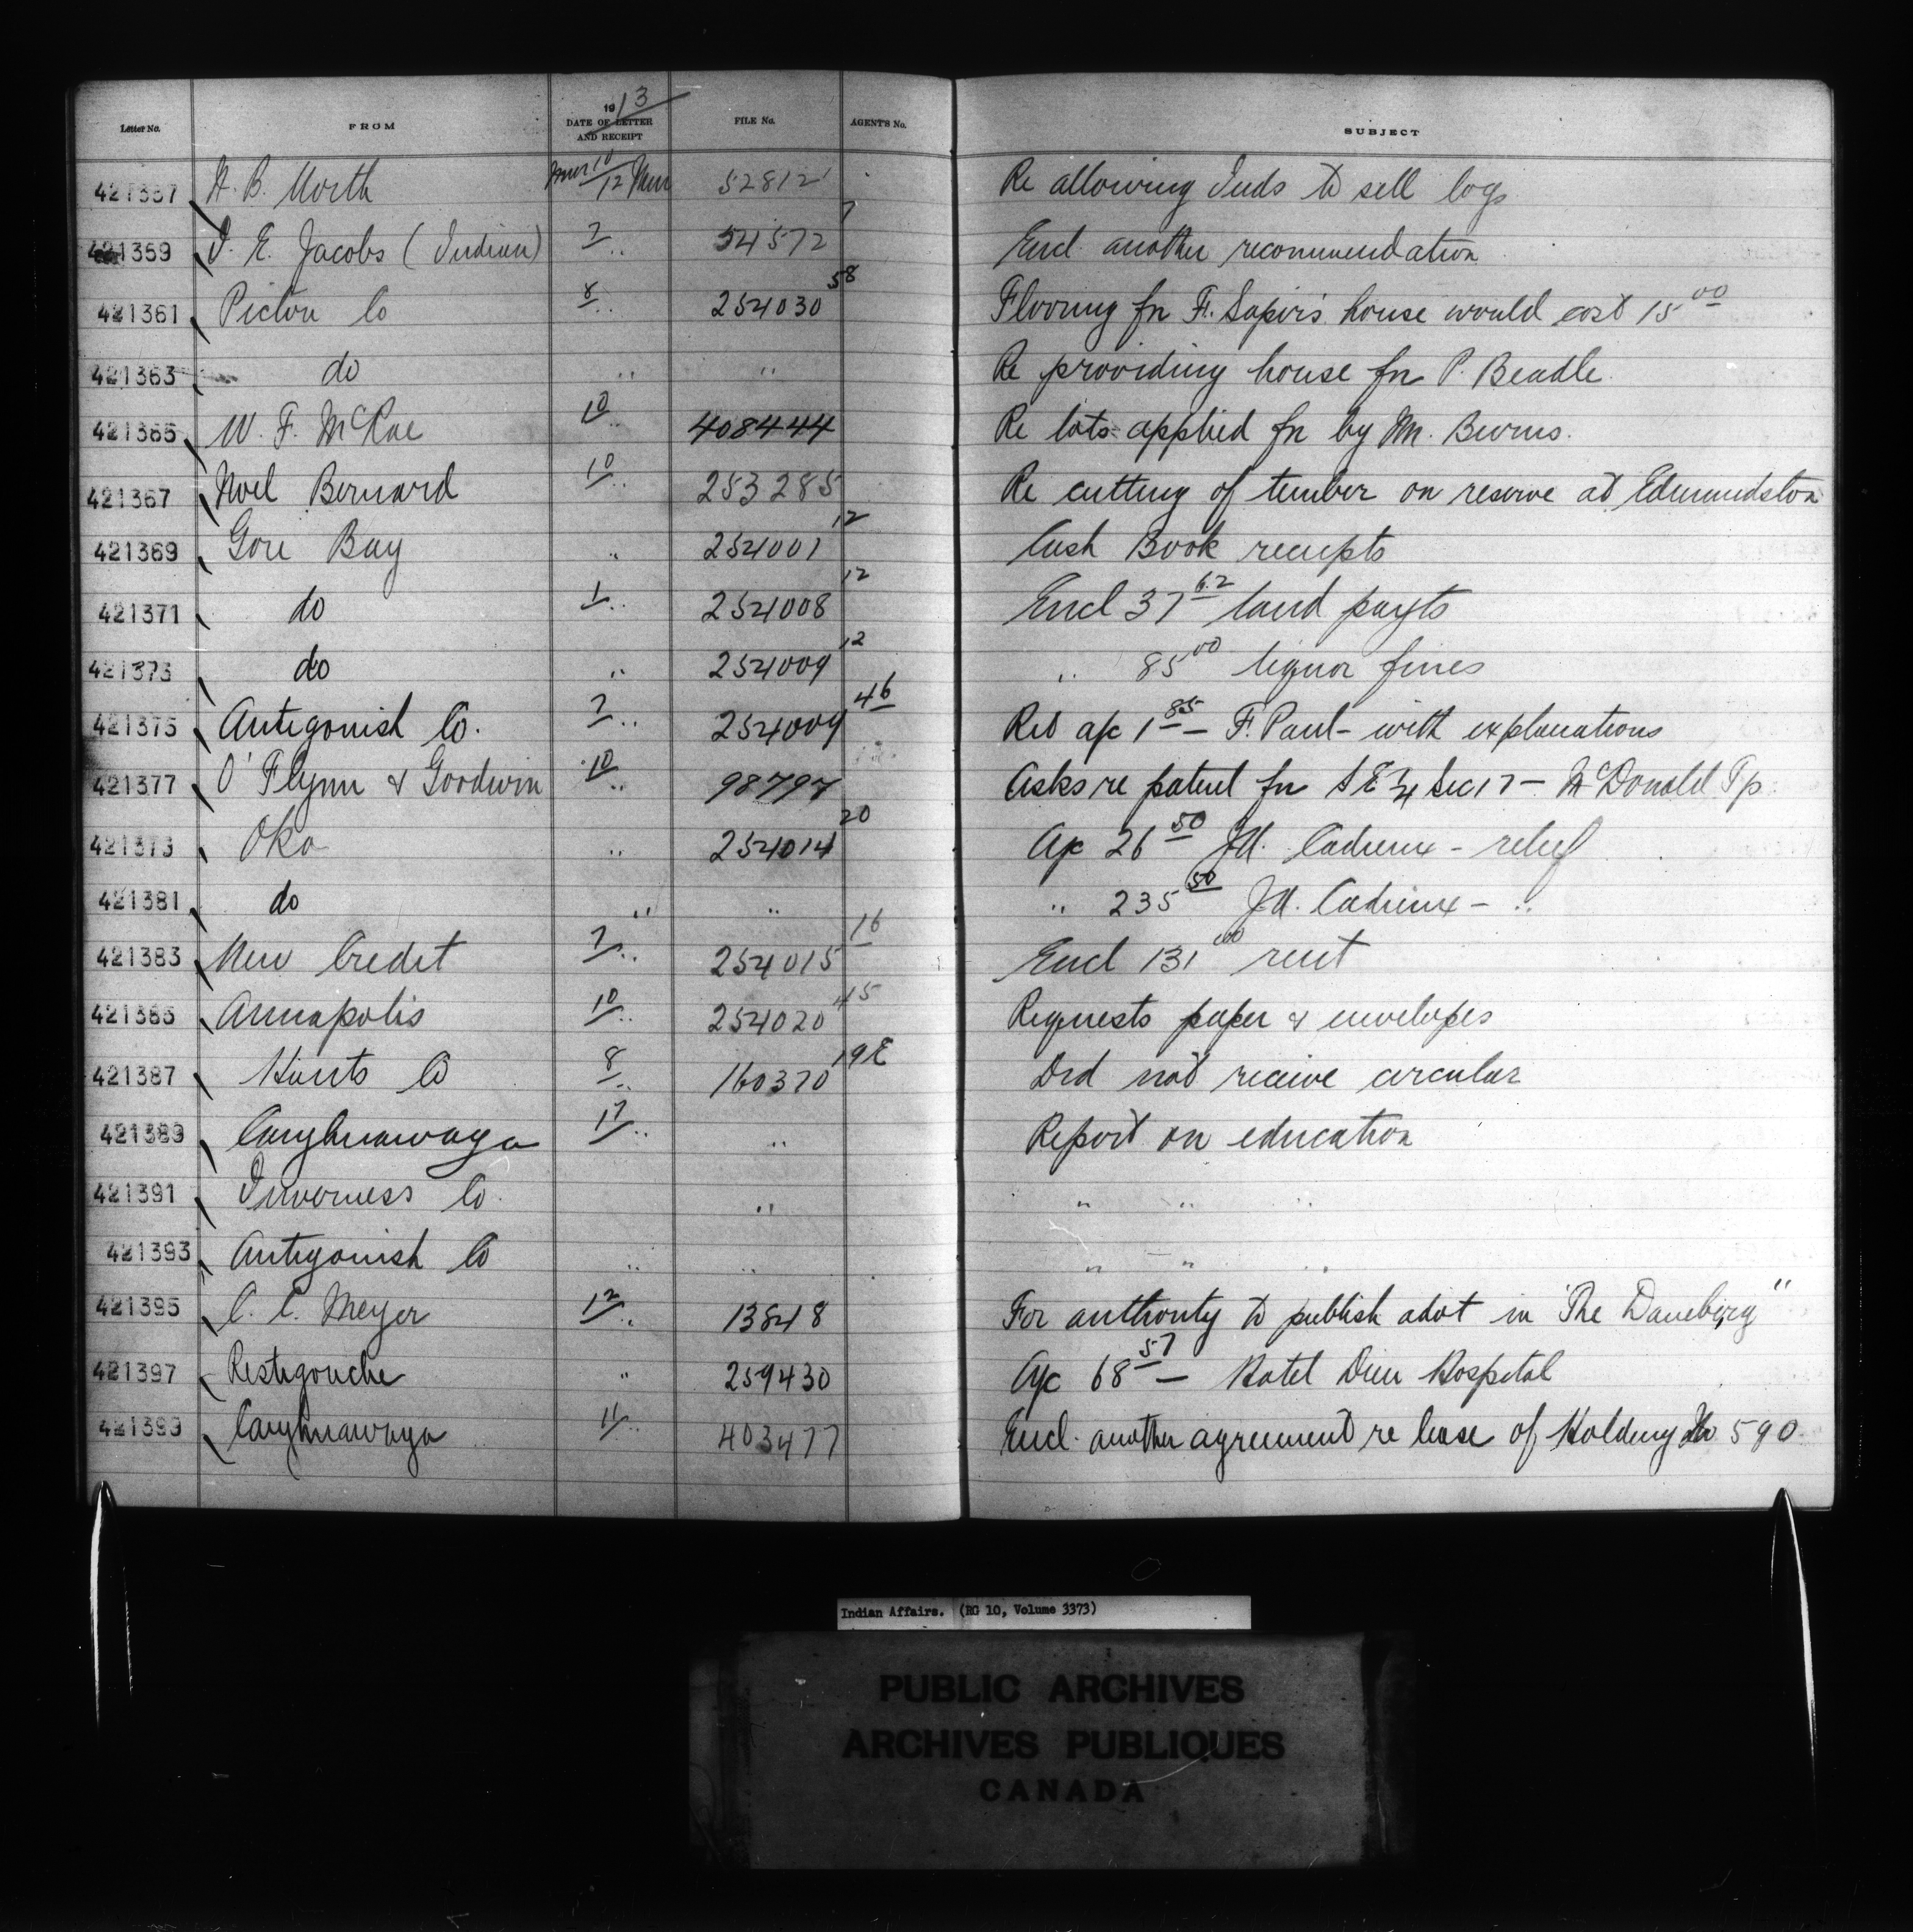 Letter No. FROM 1913 DATE OF LETTER AND RECEIPT FILE No. AGENT'S No. SUBJECT
421357 A. B. North Mar 10/12 Mar 52812 Re allowing Inds to sell logs
421359 J. E. Jacobs (Indian) 7 " 54572 7 Encl. another recommendation
421361 Pictou Co 8 " 254030 58 Flooring for F. Sapiers house would cost 15 00
421363 do " " Re providing house for P. Beadle.
421365 W. F. McRae 10 " 408444 Re lots applied for by M. Burns.
421367 Noel Bernard 10 " 253285 Re cutting of timber on reserve at Edmundston
421369 Gore Bay " 254001 12 Cash Book receipts
421371 do 1 " 254008 12 Encl 37 62 land payts
421373 do " 254009 12 " 85 00 liquor fines
421375 Antigonish Co. 7 " 254009 46 Ret a/c 1 85 — F. Paul — with explanations
421377 O'Flynn & Goodwin 10 " 98797 Asks re patent for S E ¼ Sec 17 — McDonald Tp.
421379 Oka " 254014 20 A/c 26 50 J.A. Cadieux - relief
421381 do " " " 235 50 J.A. Cadieux - "
421383 New Credit 7 " 254015 16 Encl 131 00 rent
421385 Annapolis 10 " 254020 45 Requests paper & envelopes
421387 Hants Co 8 " 160370 19E Did not receive circular
421389 Caughnawaga 17 " " Report on education
421391 Inverness Co. " " " "
421393 Antigonish Co " " " " "
421395 C. C. Meyer 12 " 13848 For authority to publish advt in "The Daneberg"
421397 Restigouche " 259430 A/c 68 57 — Hotel Dieu Hospital
421399 Caughnawaga 11 " 403477 Encl. another agreement re lease of Holding No 590
Indian Affairs. (RG 10, Volume 3373)
PUBLIC ARCHIVES
ARCHIVES PUBLIQUES
CANADA